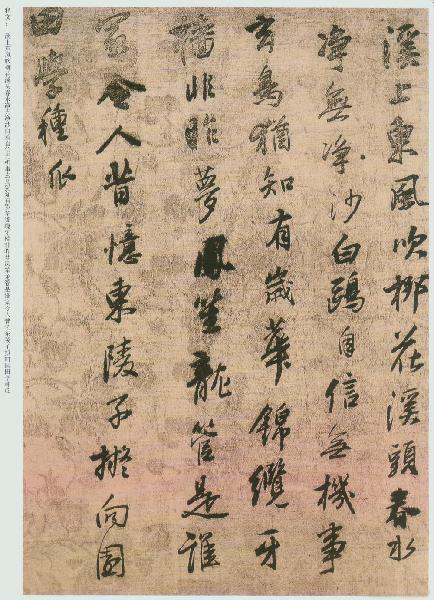 溪上東風吹柳花溪頭春水
淨無淨沙白鷗自信無機事
玄鳥猶知有歲華錦纜牙
檣非昨夢鳳笙龍管是誰
家令人昔憶東陵子擬向園
田學種瓜